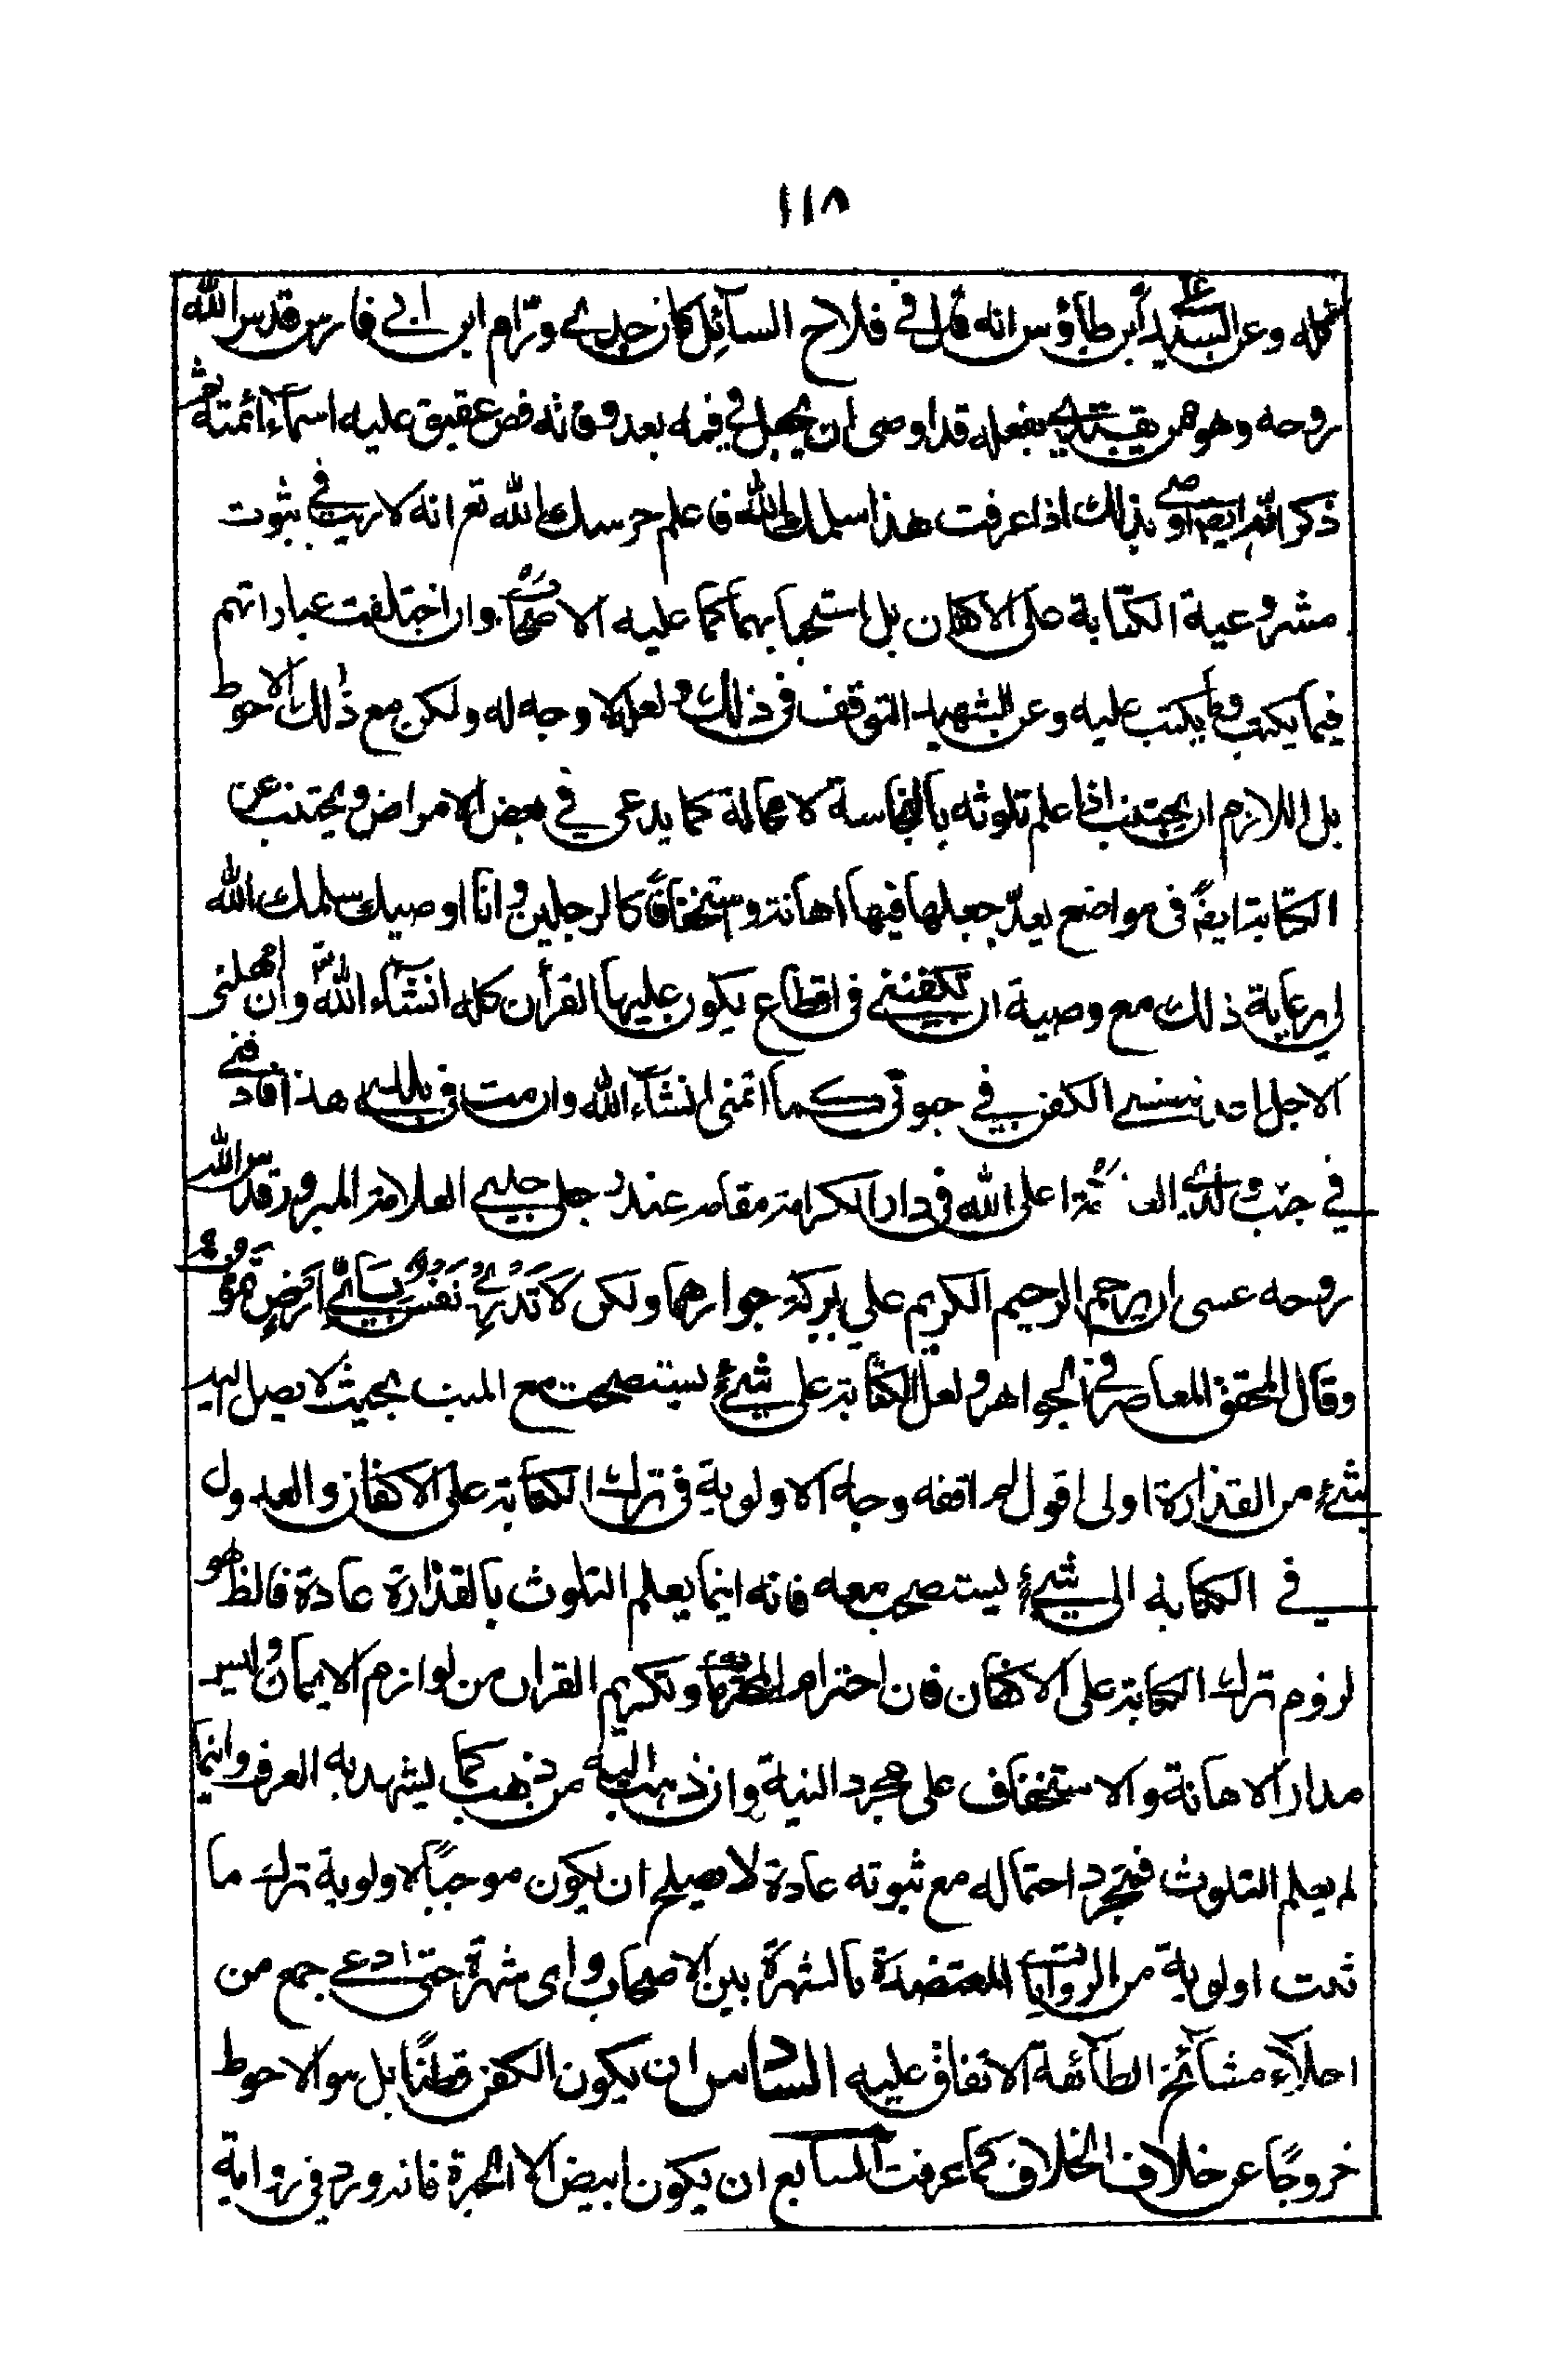 ١١٨
كله وعن السيد ابن طاؤس انه قال في فلاح السآئل كان جدي ورّام ابن ابي فارس قدس الله
روحه وهو ممن يقتدى بفعله قد اوصى ان يجعل في فمه بعد وفاته فص عقيق عليه اسمآء ائمته ثم
ذكر انه ايضا اوصى بذلك اذا عرفت هذا سلمك الله فاعلم حرسك الله تعم انه لا ريب في ثبوت
مشروعية الكتابة على الاكفان بل استحبابها كما عليه الاصحاب وان اختلفت عباراتهم
فيما يكتب وما يكتب عليه وعن الشهيد التوقف في ذلك ولعله لا وجه له ولكن مع ذلك الاحوط
بل اللازم ان يجتنب اذا علم تلوثه بالنجاسة لا محالة كما يدعى في بعض الامراض ويجتنب عن
الكتابة ايضً في مواضع يعدّ جعلها فيها اهانة واستخفافًا كالرجلين وانا اوصيك سلمك الله
لي برعاية ذلك مع وصية ان تكفنني في اقطاع يكون عليها القرأن كله انشآء الله تعم وان امهلني
الاجل الكفن في حيوتي كما اتمنى انشآء الله وان مت في بلدي هذا فادفني
في جنب والدي اعلى الله في دار الكرامة مقامه عند جدي العلامة المبرور قدس الله
روحه عسى ان يرحم الرحيم الكريم علي ببركة جوارهما ولكن لا تَدْرِيْ نَفْسٌ بِاَيِّ اَرْضٍ تَمُوْتُ
وقال المحقق المعاصر في الجواهر ولعل الكتابة على شيء يستصحب مع الميت بحيث لا يصل اليه
شيء من القذارة اولى اقول لم افقه وجه الاولوية في ترك الكتابة على الاكفان والعدول
في الكتابة الى شيء يستصحب معه فانه اينما يعلم التلوث بالقذارة عادة فالظ هو
لزوم ترك الكتابة على الاكفان فان احترام المحترمات وتكريم القران من لوازم الايمان وليس
مدار الاهانة والاستخفاف على مجرد النية وان ذهب اليه من ذهب كما يشهد به العرف واينما
لم يعلم التلوث فمجرد احتماله مع ثبوته عادة لا يصلح ان يكون موجبًا لاولوية ترك ما
ثبت اولوية من الروايات المعتضدة بالشهرة بين الاصحاب واى شهرة حتى ادعى جمع من
اجلآء مشآئخ الطآئفة الاتفاق عليه السادس ان يكون الكفن قطنًا بل هو الاحوط
خروجًا عن خلاف الخلاف كما عرفت السابع ان يكون ابيض الا الحبرة فانه ورد في رواية